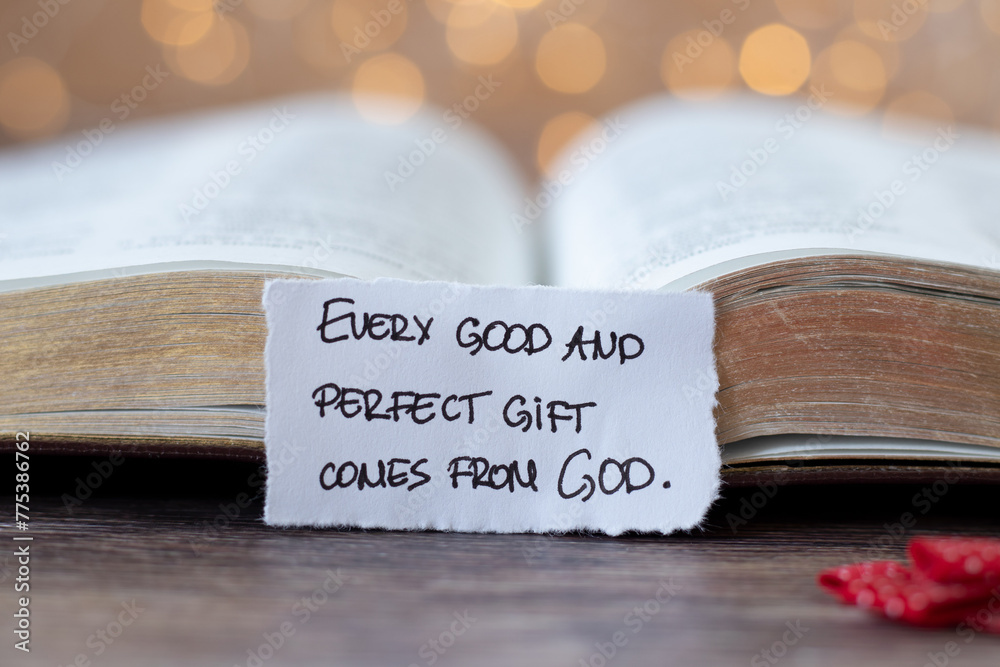 EVERY GOOD AND
PERFECT GIFT
COMES FROM GOD.
Adobe Stock | #775386762